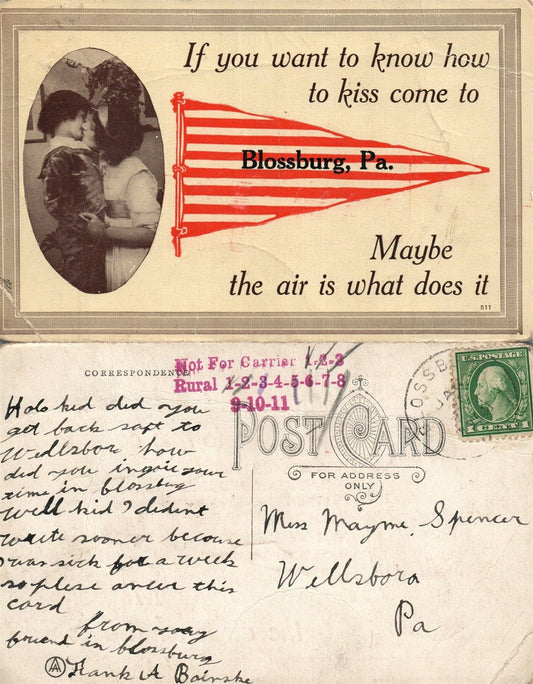 If you want to know how
to kiss come to
Blossburg, Pa.
Maybe
the air is what does it
511
CORRESPONDENCE
Not For Carrier 1-2-3
Rural 1-2-3-4-5-6-7-8
9-10-11
POST CARD
FOR ADDRESS
ONLY
BLOSSB
JA
U.S. POSTAGE
1 CENT 1
Holo kid did you
get back saft to
Wellsbor how
did you your
time in blossburg
Well kid I dident
write sooner because
I was sick for a week
so plese this
card
from
friend in blossburg
Frank A
Miss Mayme Spencer
Wellsboro
Pa